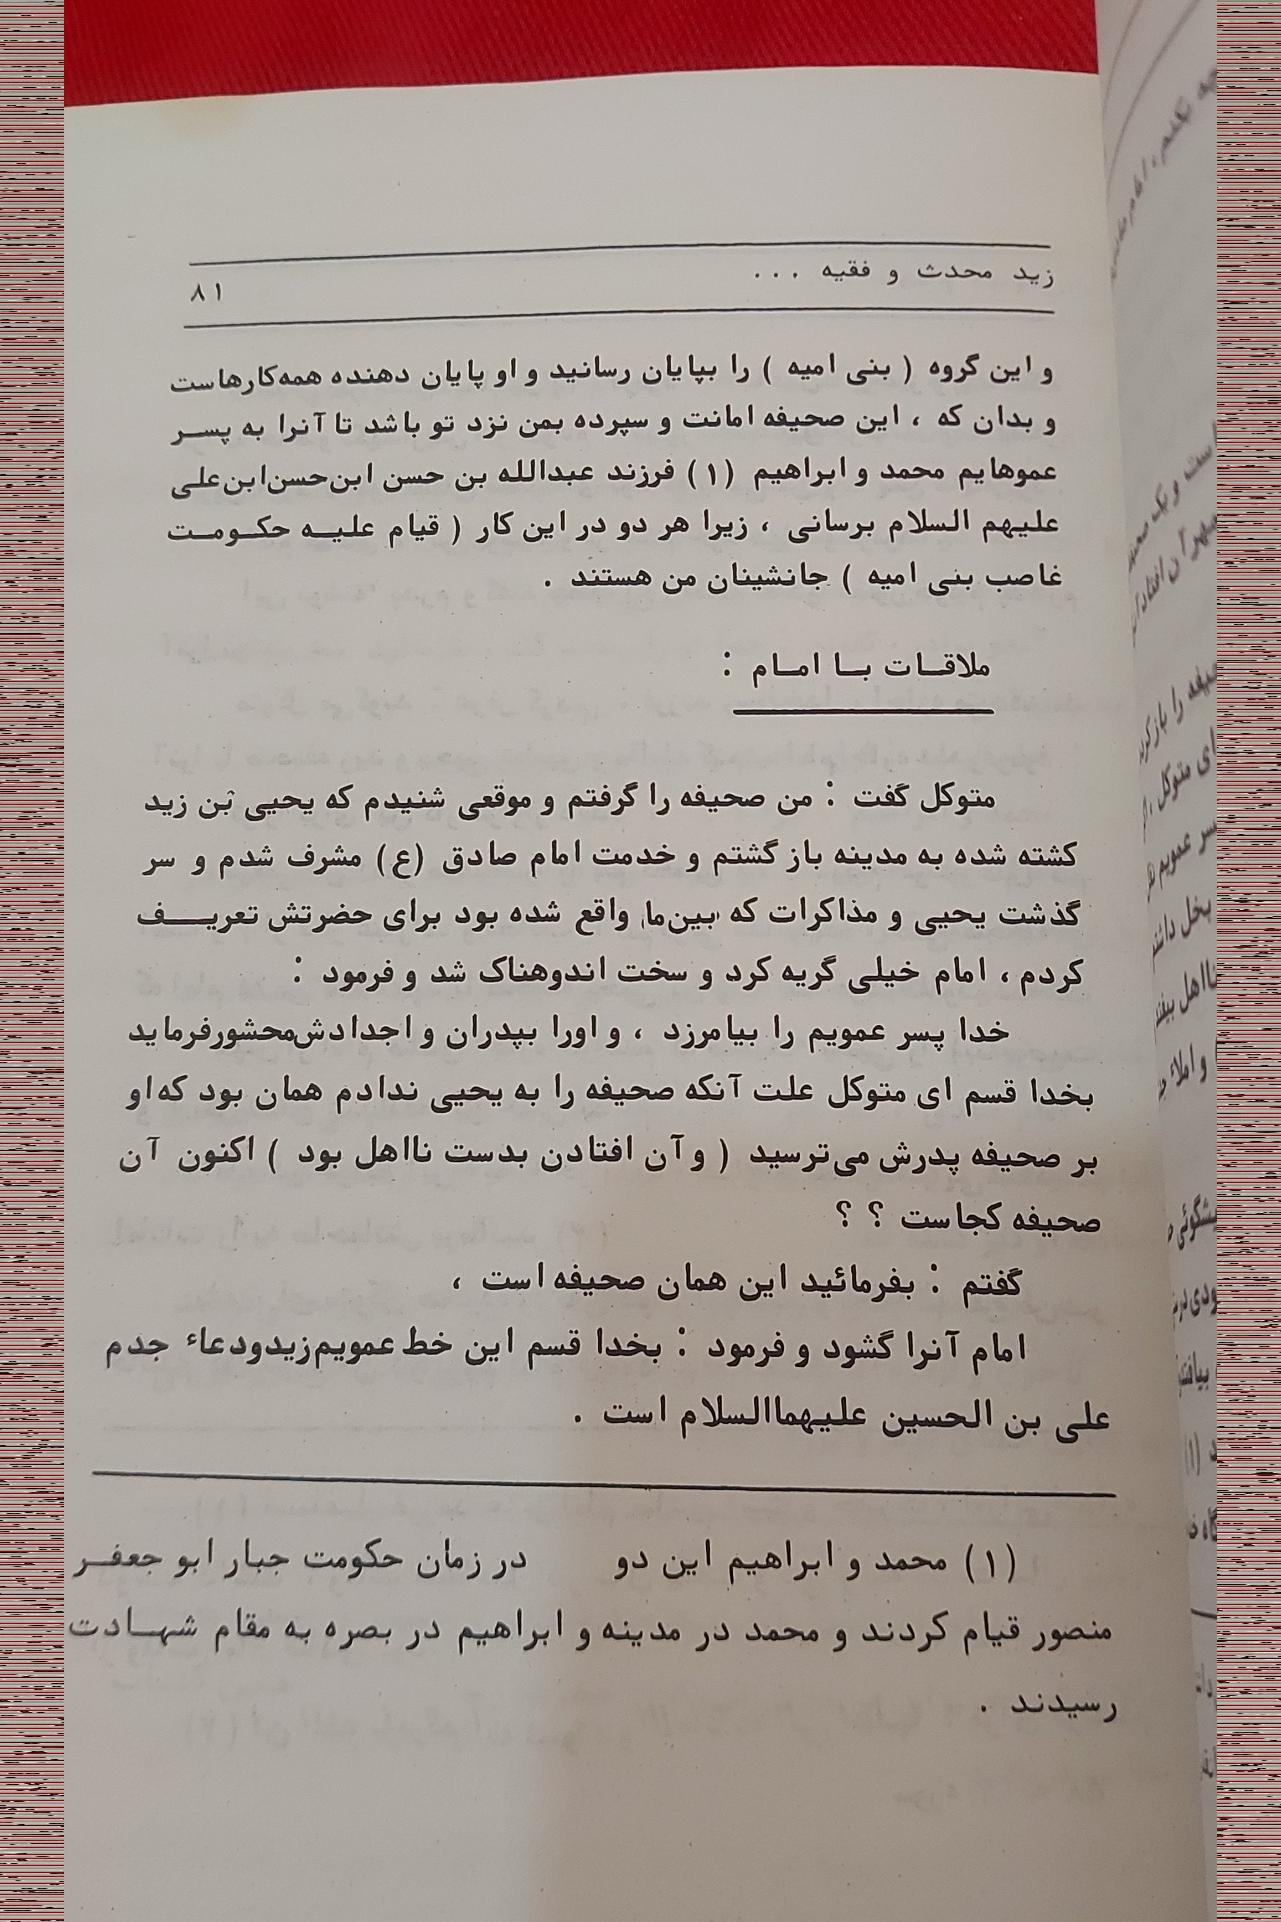 زید محدث و فقیه ...
۸۱
و این گروه ( بنی امیه ) را بپایان رسانید و او پایان دهنده همه‌کارهاست
و بدان که ، این صحیفه امانت و سپرده بمن نزد تو باشد تا آنرا به پسر
عموهایم محمد و ابراهیم (۱) فرزند عبدالله بن حسن ابن‌حسن‌ابن‌علی
علیهم السلام برسانی ، زیرا هر دو در این کار ( قیام علیه حکومت
غاصب بنی امیه ) جانشینان من هستند .
ملاقات با امام :
متوکل گفت : من صحیفه را گرفتم و موقعی شنیدم که یحیی بن زید
کشته شده به مدینه باز گشتم و خدمت امام صادق (ع) مشرف شدم و سر
گذشت یحیی و مذاکرات که بین‌ما واقع شده بود برای حضرتش تعریف
کردم ، امام خیلی گریه کرد و سخت اندوهناک شد و فرمود :
خدا پسر عمویم را بیامرزد ، و اورا بپدران و اجدادش‌محشورفرماید
بخدا قسم ای متوکل علت آنکه صحیفه را به یحیی ندادم همان بود که‌او
بر صحیفه پدرش می‌ترسید ( و آن افتادن بدست نااهل بود ) اکنون آن
صحیفه کجاست ؟ ؟
گفتم : بفرمائید این همان صحیفه است ،
امام آنرا گشود و فرمود : بخدا قسم این خط عمویم‌زیدودعاء جدم
علی بن الحسین علیهماالسلام است .
(۱) محمد و ابراهیم این دو در زمان حکومت جبار ابو جعفر
منصور قیام کردند و محمد در مدینه و ابراهیم در بصره به مقام شهادت
رسیدند .